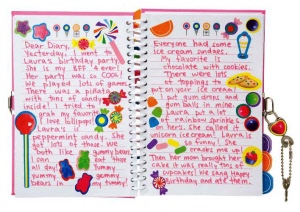 Dear Diary,
Yesterday, I went to
Laura's birthday party.
She is my BFF 4 ever!
Her party was so COOL!
We played lots of games.
There was a piñata
with tons of candy
inside! I tried to
grab my favorite
I love lollipops!
Laura's is
peppermint candy. She
got lots of those. We
both like gummy bears
I can eat those
all day! Yummy
gummy
bears in my tummy!
Everyone had some
ice cream sundaes.
My favorite is
chocolate with cookies.
There were lots
of toppings to
put on your ice cream!
I put gum drops and
gum balls in mine.
Laura put a lot
of rainbow sprinkles
on hers. She called it
unicorn ice cream! Laura
is so funny! She
cracks me up!
Then her mom brought her
cake it was really tons of
cupcakes! We sang Happy
Birthday and ate them.